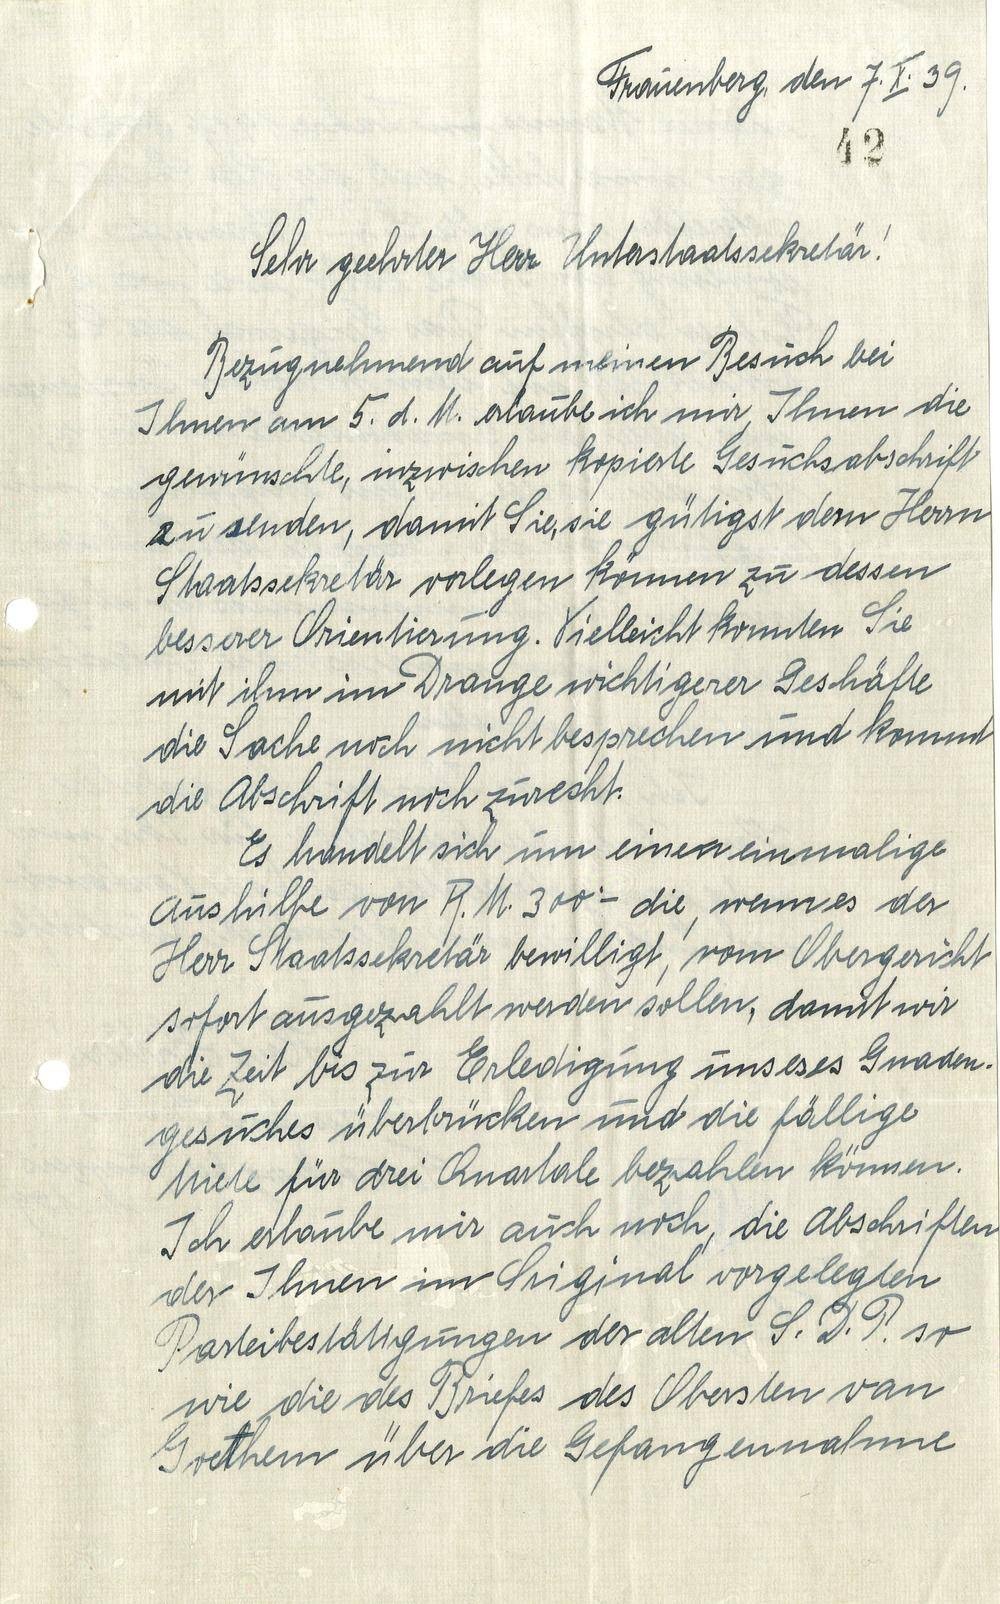 Frauenberg, den 7. X. 39.
42
Sehr geehrter Herr Unterstaatssekretär!
Bezugnehmend auf meinen Besuch bei
Ihnen am 5. d. M. erlaube ich mir, Ihnen die
gewünschte, inzwischen kopierte Gesuchsabschrift
zu senden, damit Sie, sie gütigst dem Herrn
Staatssekretär vorlegen können zu dessen
besserer Orientierung. Vielleicht konnten Sie
mit ihm im Drange wichtigerer Geschäfte
die Sache noch nicht besprechen und kommt
die Abschrift noch zurecht.
Es handelt sich um einen einmalige
Aushilfe von R. M. 300·– die, wenn es der
Herr Staatssekretär bewilligt, vom Obergericht
sofort ausgezahlt werden sollen, damit wir
die Zeit bis zur Erledigung unseres Gnaden-
gesuches überbrücken und die fällige
Miete für drei Quartale bezahlen können.
Ich erlaube mir auch noch, die Abschriften
der Ihnen im Original vorgelegten
Parteibestätigungen der alten S. D. P. so
wie die des Briefes des Obersten van
Goethem über die Gefangennahme